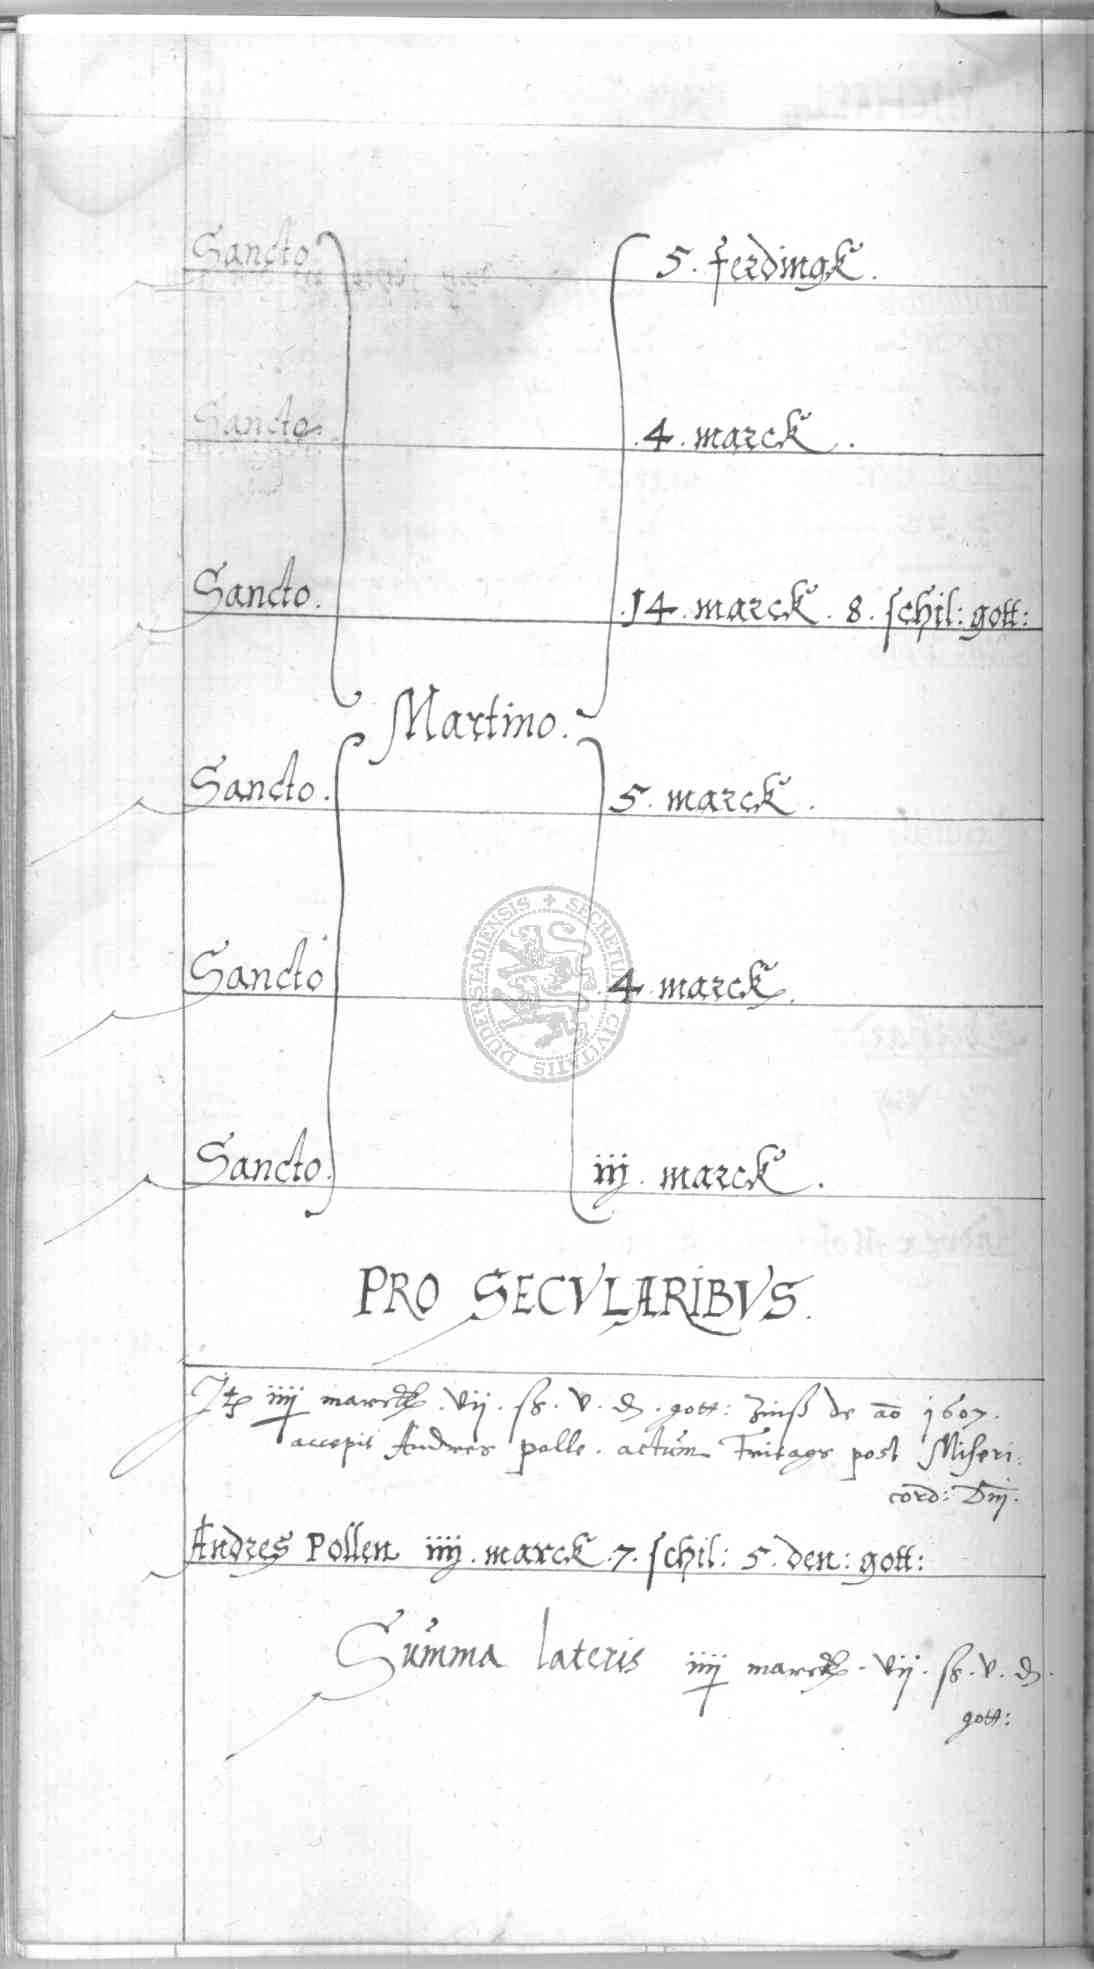 Sancto 5. ferdingk.
Sancto. .4. marck.
Sancto. .14. marck. 8. schil: gott:
Martino.
Sancto. 5. marck.
Sancto 4. marck.
Sancto. iij. marck.
PRO SECVLARIBVS.
iiij marck. vij. ß. v. d. gott: Zinß de ao 1607.
accepit Andres polle. actum Fritags post Miseri:
cord: Dnj.
Andres Pollen iiij. marck .7. schil: 5. den: gott:
Summa lateris iiij marck. vij. ß. v. d.
gott:
SECRETUM CIVITATIS DUDERSTADIENSIS